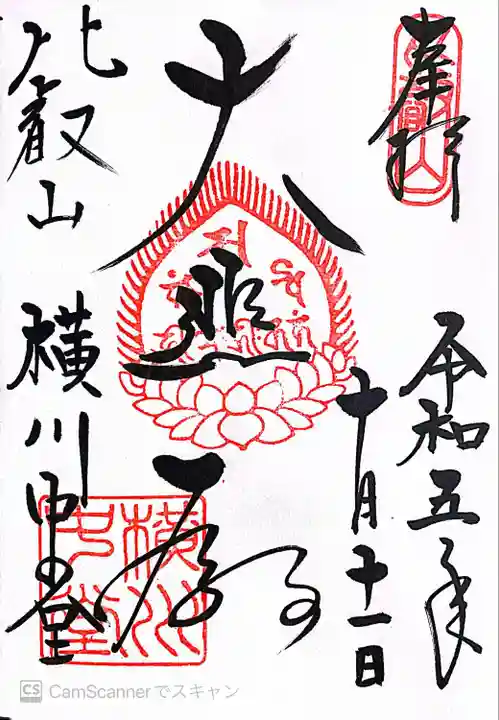 奉拝
令和五年
十月十一日
大悲殿
比叡山 横川中堂
比叡山
横川中堂
CS CamScannerでスキャン